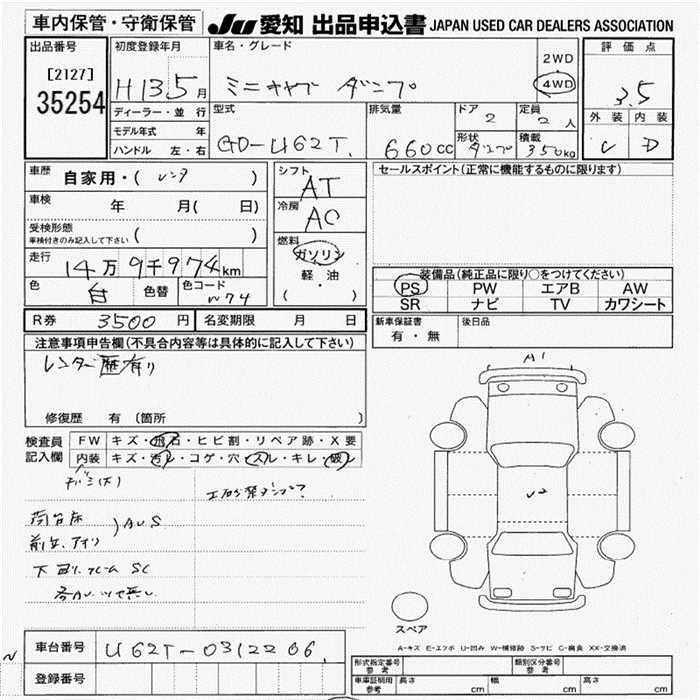 車内保管・守衛保管
JU 愛知 出品申込書 JAPAN USED CAR DEALERS ASSOCIATION
出品番号
[2127]
35254
初度登録年月
H13.5月
車名・グレード
ミニキャブ ダンプ
2WD
4WD
評価点
3.5
外装 内装
D
ディーラー・並行
モデル年式 年
ハンドル 左・右
型式
GD-U62T
排気量
660cc
ドア
2
定員
2人
形状
ダンプ
積載
350kg
車歴
自家用・(レンタ)
車検
年 月(日)
受検形態
車検付きのみ記入して下さい ( )
走行
14万9千974km
色
白
色替
色コード
W74
シフト
AT
冷房
AC
燃料
ガソリン
軽・油
( )
セールスポイント(正常に機能するものに限ります)
装備品(純正品に限り○をつけてください)
PS PW エアB AW
SR ナビ TV カワシート
新車保証書
有・無
後日品
R券 3500円
名変期限 月 日
注意事項申告欄(不具合内容等は具体的に記入して下さい)
レンタ歴有り
修復歴 有 (箇所 )
検査員
記入欄
FW キズ・飛石・ヒビ割・リペア跡・X要
内装 キズ・汚レ・コゲ・穴・スレ・キレ・破レ
荷台床
AUS
下回り フレーム SC
A1
スペア
A-キズ E-エクボ U-凹み W-補修跡 S-サビ C-腐食 XX-交換済
車台番号 U62T-0312206
登録番号
型式指定番号
参考
類別区分番号
参考
車庫証明用
参考
長さ cm 幅 cm 高さ cm